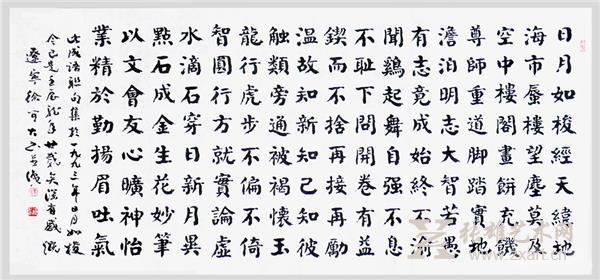 日月如梭經天緯地
海市蜃樓望塵莫及
空中樓閣畫餅充饑
尊師重道脚踏實地
澹泊明志大智若愚
有志竟成始終不渝
聞鷄起舞自强不息
不耻下問開卷有益
鍥而不捨再接再勵
温故知新知己知彼
觸類旁通被褐懷玉
龍行虎步不偏不倚
智圓行方就實論虛
水滴石穿日新月異
點石成金生花妙筆
以文會友心曠神怡
業精於勤揚眉吐氣
此成語聯句集於一九九三年日月如梭
今已是壬辰龍年廿載矣深有感慨
遼寧徐可大
艺术网
www.zxart.cn